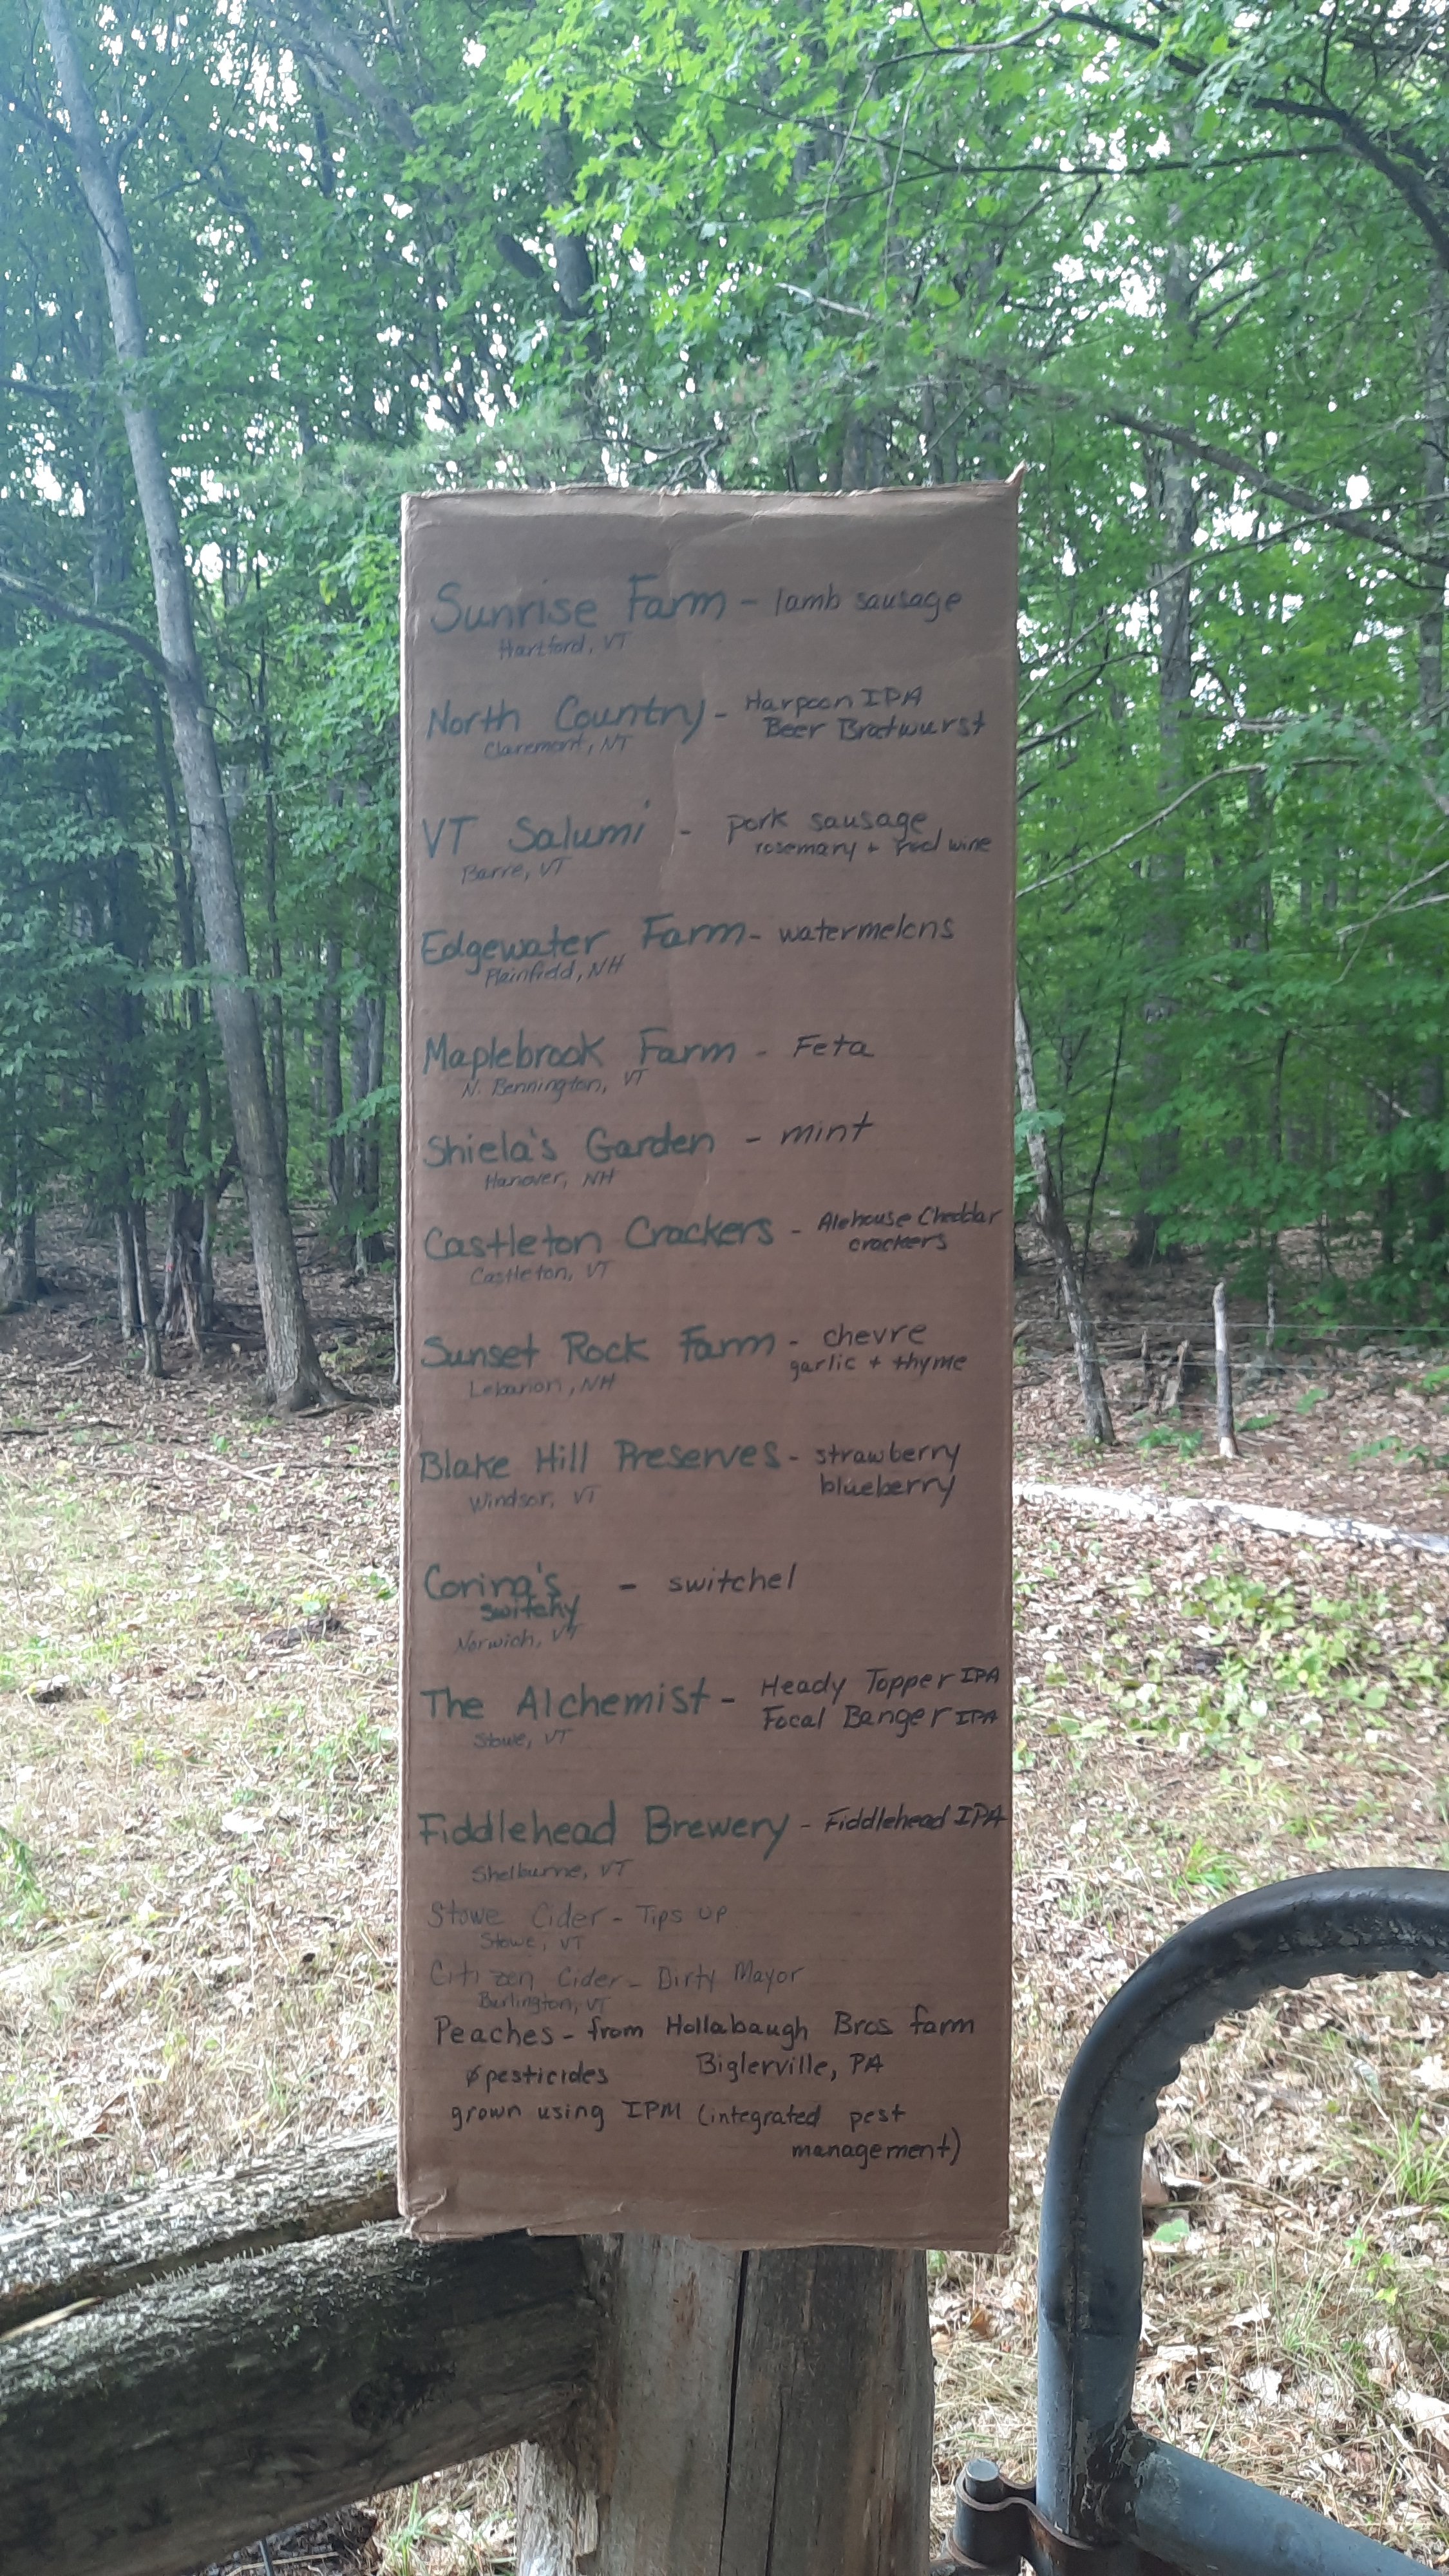 Sunrise Farm - lamb sausage
Hartford, VT
North Country - Harpoon IPA
Beer Bratwurst
Claremont, NT
VT Salumi - pork sausage
rosemary + red wine
Barre, VT
Edgewater Farm - watermelons
Plainfield, NH
Maplebrook Farm - Feta
N. Bennington, VT
Shiela's Garden - mint
Hanover, NH
Castleton Crackers - Alehouse Cheddar
crackers
Castleton, VT
Sunset Rock Farm - chevre
garlic + thyme
Lebanon, NH
Blake Hill Preserves - strawberry
blueberry
Windsor, VT
Corina's - switchel
switchy
Norwich, VT
The Alchemist - Heady Topper IPA
Focal Banger IPA
Stowe, VT
Fiddlehead Brewery - Fiddlehead IPA
Shelburne, VT
Stowe Cider - Tips Up
Stowe, VT
Citizen Cider - Dirty Mayor
Burlington, VT
Peaches - from Hollabaugh Bros farm
ø pesticides Biglerville, PA
grown using IPM (integrated pest
management)